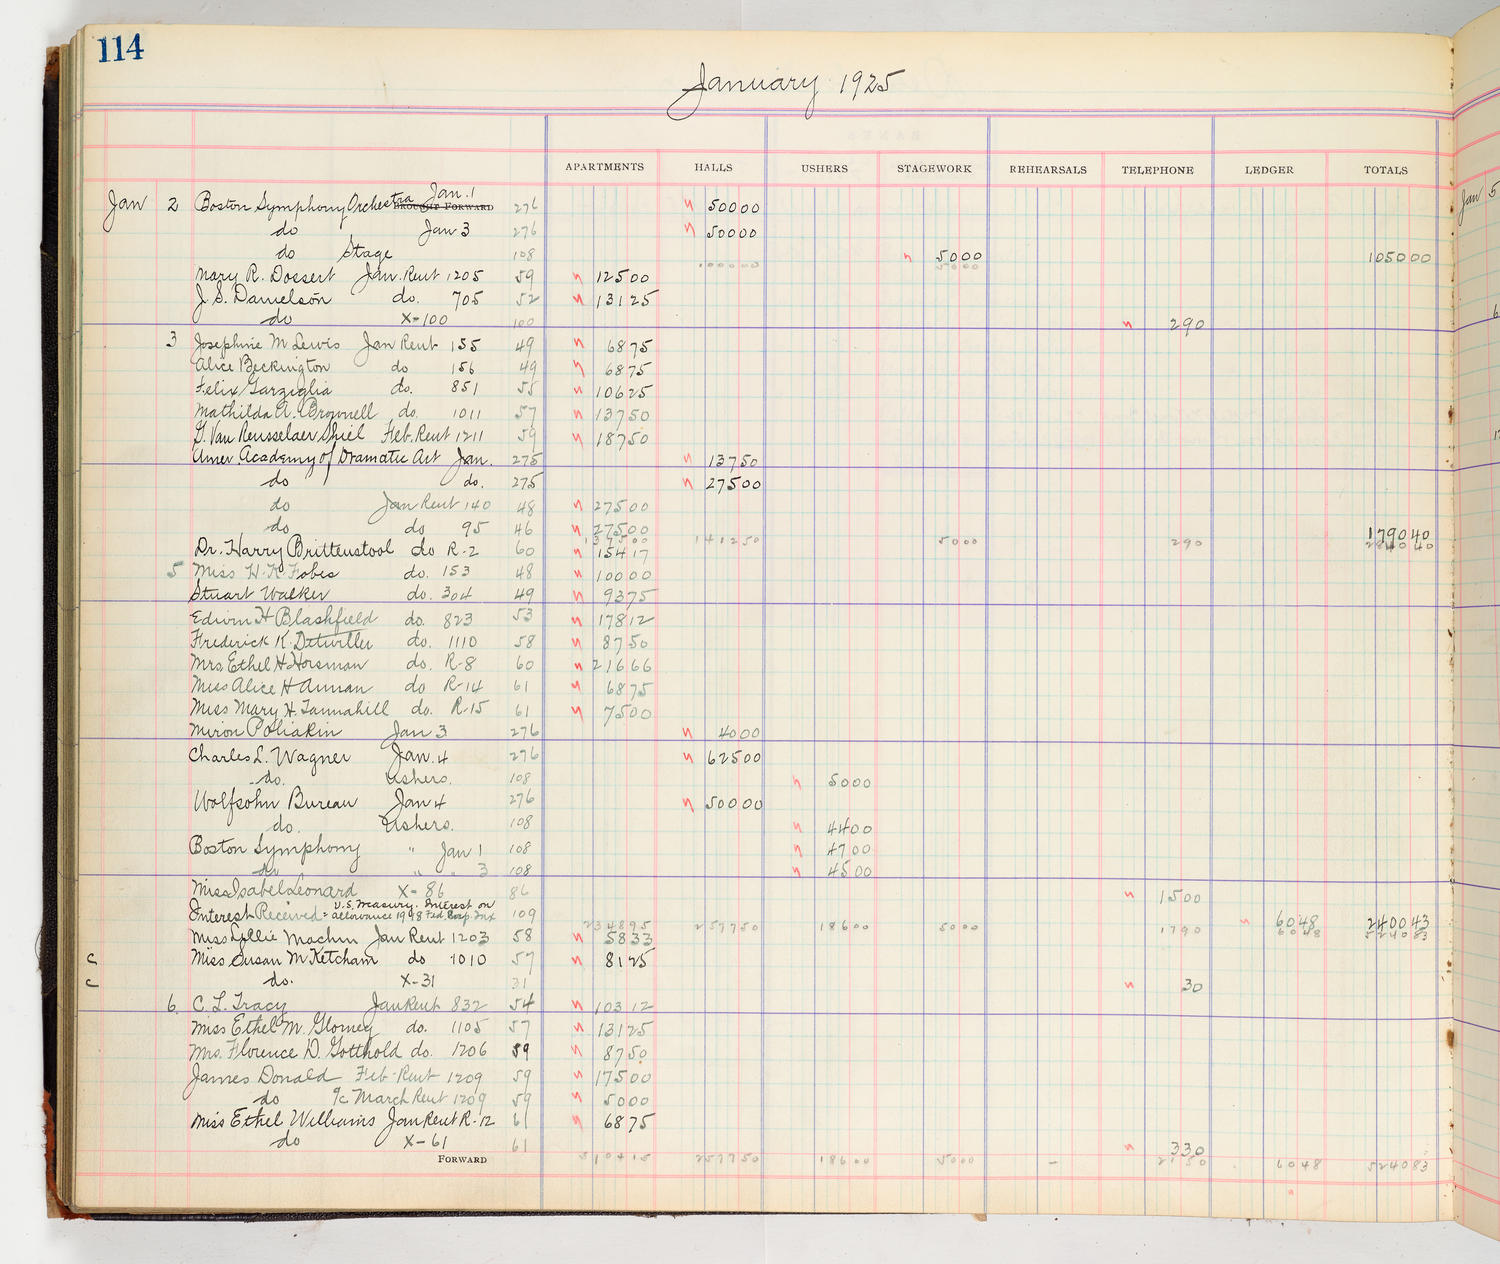 114
January 1925
APARTMENTS HALLS USHERS STAGEWORK REHEARSALS TELEPHONE LEDGER TOTALS
Jan 2 Boston Symphony Orchestra Jan. 1 BROUGHT FORWARD 276 50000
do Jan 3 276 50000
do Stage 108 5000 105000
Mary R. Dossert Jan. Rent 1205 59 12500
J. S. Danielson do. 705 52 13125
do X-100 100 290
3 Josephine M Lewis Jan Rent 155 49 6875
Alice Beckington do 156 49 6875
Felix Garziglia do. 851 55 10625
Mathilda A. Brownell do. 1011 57 13750
G. Van Rensselaer Shiel Feb. Rent 1211 59 18750
Amer. Academy of Dramatic Art Jan. 275 13750
do do. 275 27500
do Jan Rent 140 48 27500
do do 95 46 27500 179040
137500 141250 5000 290 284040
Dr. Harry Brittenstool do R-2 60 15417
5 Miss H. K. Fobes do. 153 48 10000
Stuart Walker do. 304 49 9375
Edwin H Blashfield do. 823 53 17812
Frederick K. Detwiller do. 1110 58 8750
Mrs. Ethel H Horsman do. R-8 60 21666
Miss Alice H Annan do R-14 61 6875
Miss Mary H. Tannahill do. R-15 61 7500
Miron Poliakin Jan 3 276 4000
Charles L. Wagner Jan. 4 276 62500
do. Ushers. 108 5000
Wolfsohn Bureau Jan 4 276 50000
do. Ushers. 108 4400
Boston Symphony " Jan 1 108 4700
do " " 3 108 4500
Miss Isabel Leonard X-86 86 1500
U.S. Treasury. Interest on
Interest Received = allowance 1918 Fed. Corp. Tax 109 6048 240043
234895 257750 18600 5000 1790 6048 524083
Miss Lillie Machin Jan Rent 1203 58 5833
c Miss Susan M Ketcham do 1010 57 8125
c do. X-31 31 30
6. C. L. Tracy Jan Rent 832 54 10312
Miss Ethel M. Glorney do. 1105 57 13125
Mrs. Florence D. Gotthold do. 1206 59 8750
James Donald Feb. Rent 1209 59 17500
do %c March Rent 1209 59 5000
Miss Ethel Williams Jan Rent R-12 61 6875
do X-61 61 330
FORWARD 310415 257750 18600 5000 - 2150 6048 524083
Jan 5